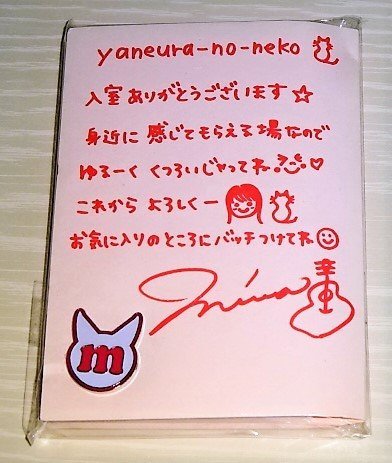 yaneura-no-neko
入室ありがとうございます☆
身近に感じてもらえる場なので
ゆるーくくつろいじゃってね♡
これからよろしくー
お気に入りのところにバッチつけてね
miwa
m